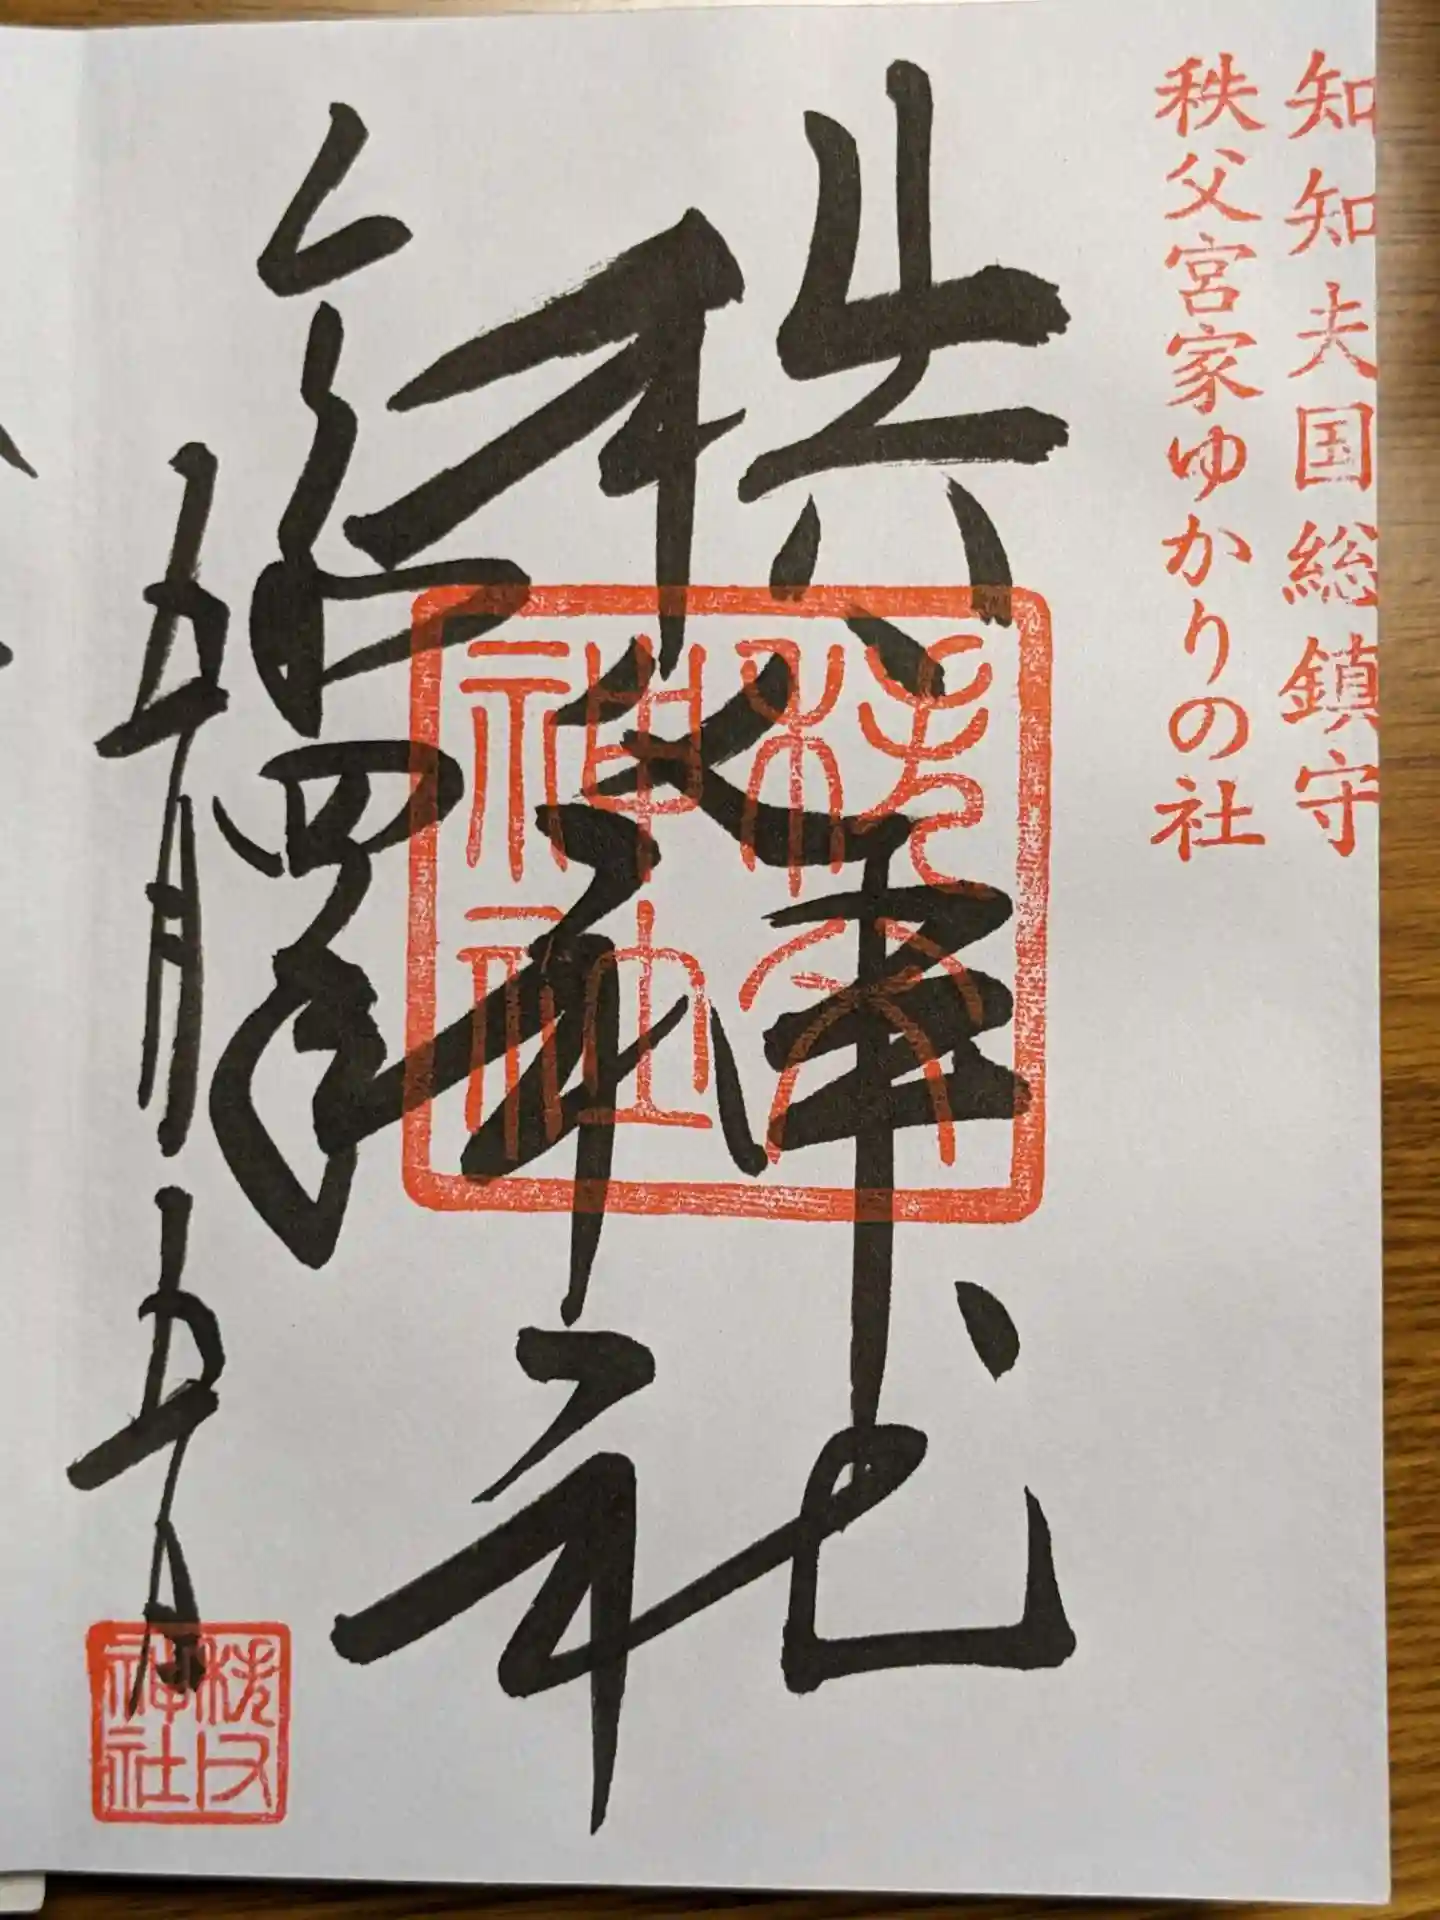 知知夫国総鎮守
秩父宮家ゆかりの社
秩父神社
令和四年
五月五日
秩父神社
秩父神社